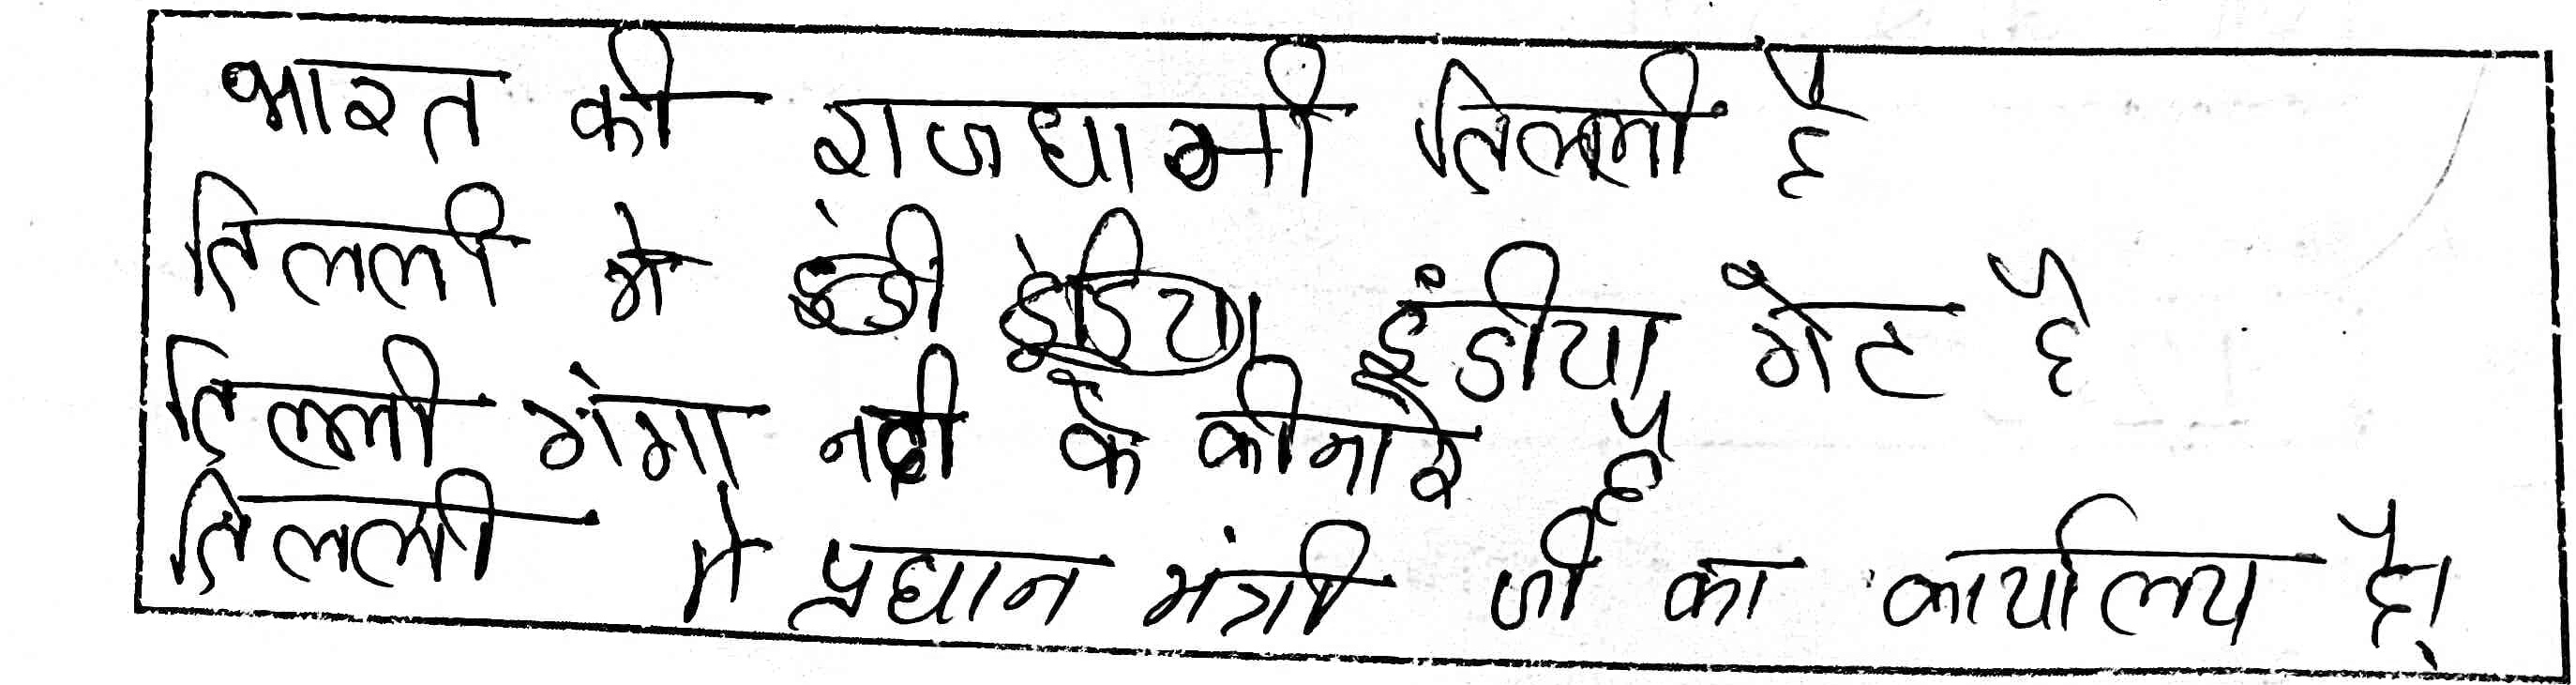 भारत की राजधानी दिल्ली है
दिलली मे इंडी इंडिया इंडीया गेट है
दिलली गंगा नदी के कीनारे है
दिलली मे प्रधान मंत्री जी का कार्यालय है।